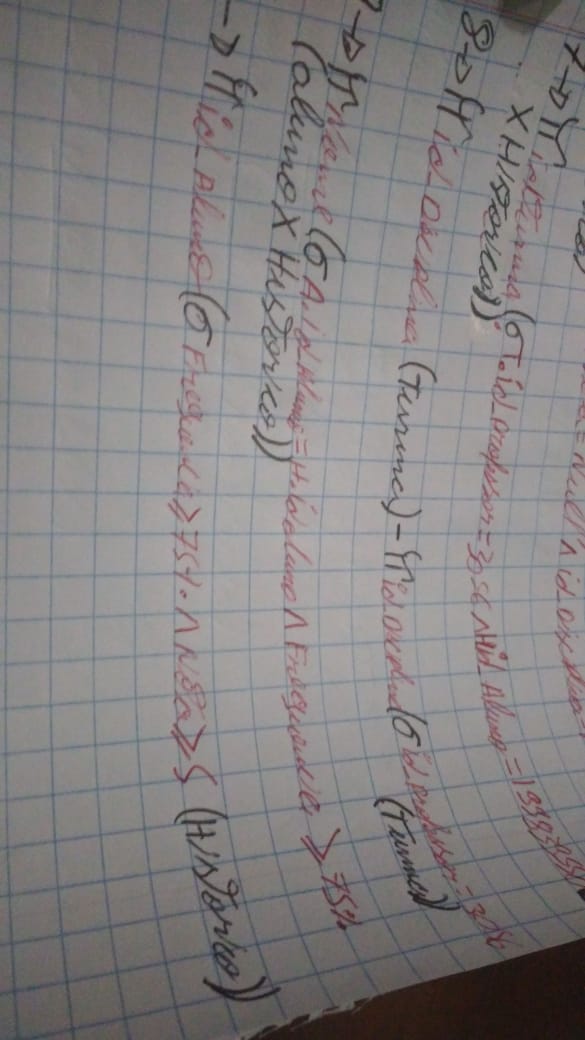 7→ π idTurma (σ T.id_professor = 3056 ∧ H.id_Aluno =
X Historico))
8→ π id_Disciplina (Turma) - π id_Disciplina (σ id_professor = 3056
(Turma))
→ π Nome (σ A.id_Aluno = H.id_aluno ∧ Frequencia ≥ 75%
(aluno X Historico))
→ π id_Aluno (σ Frequencia ≥ 75% ∧ Nota ≥ 5 (Historico))